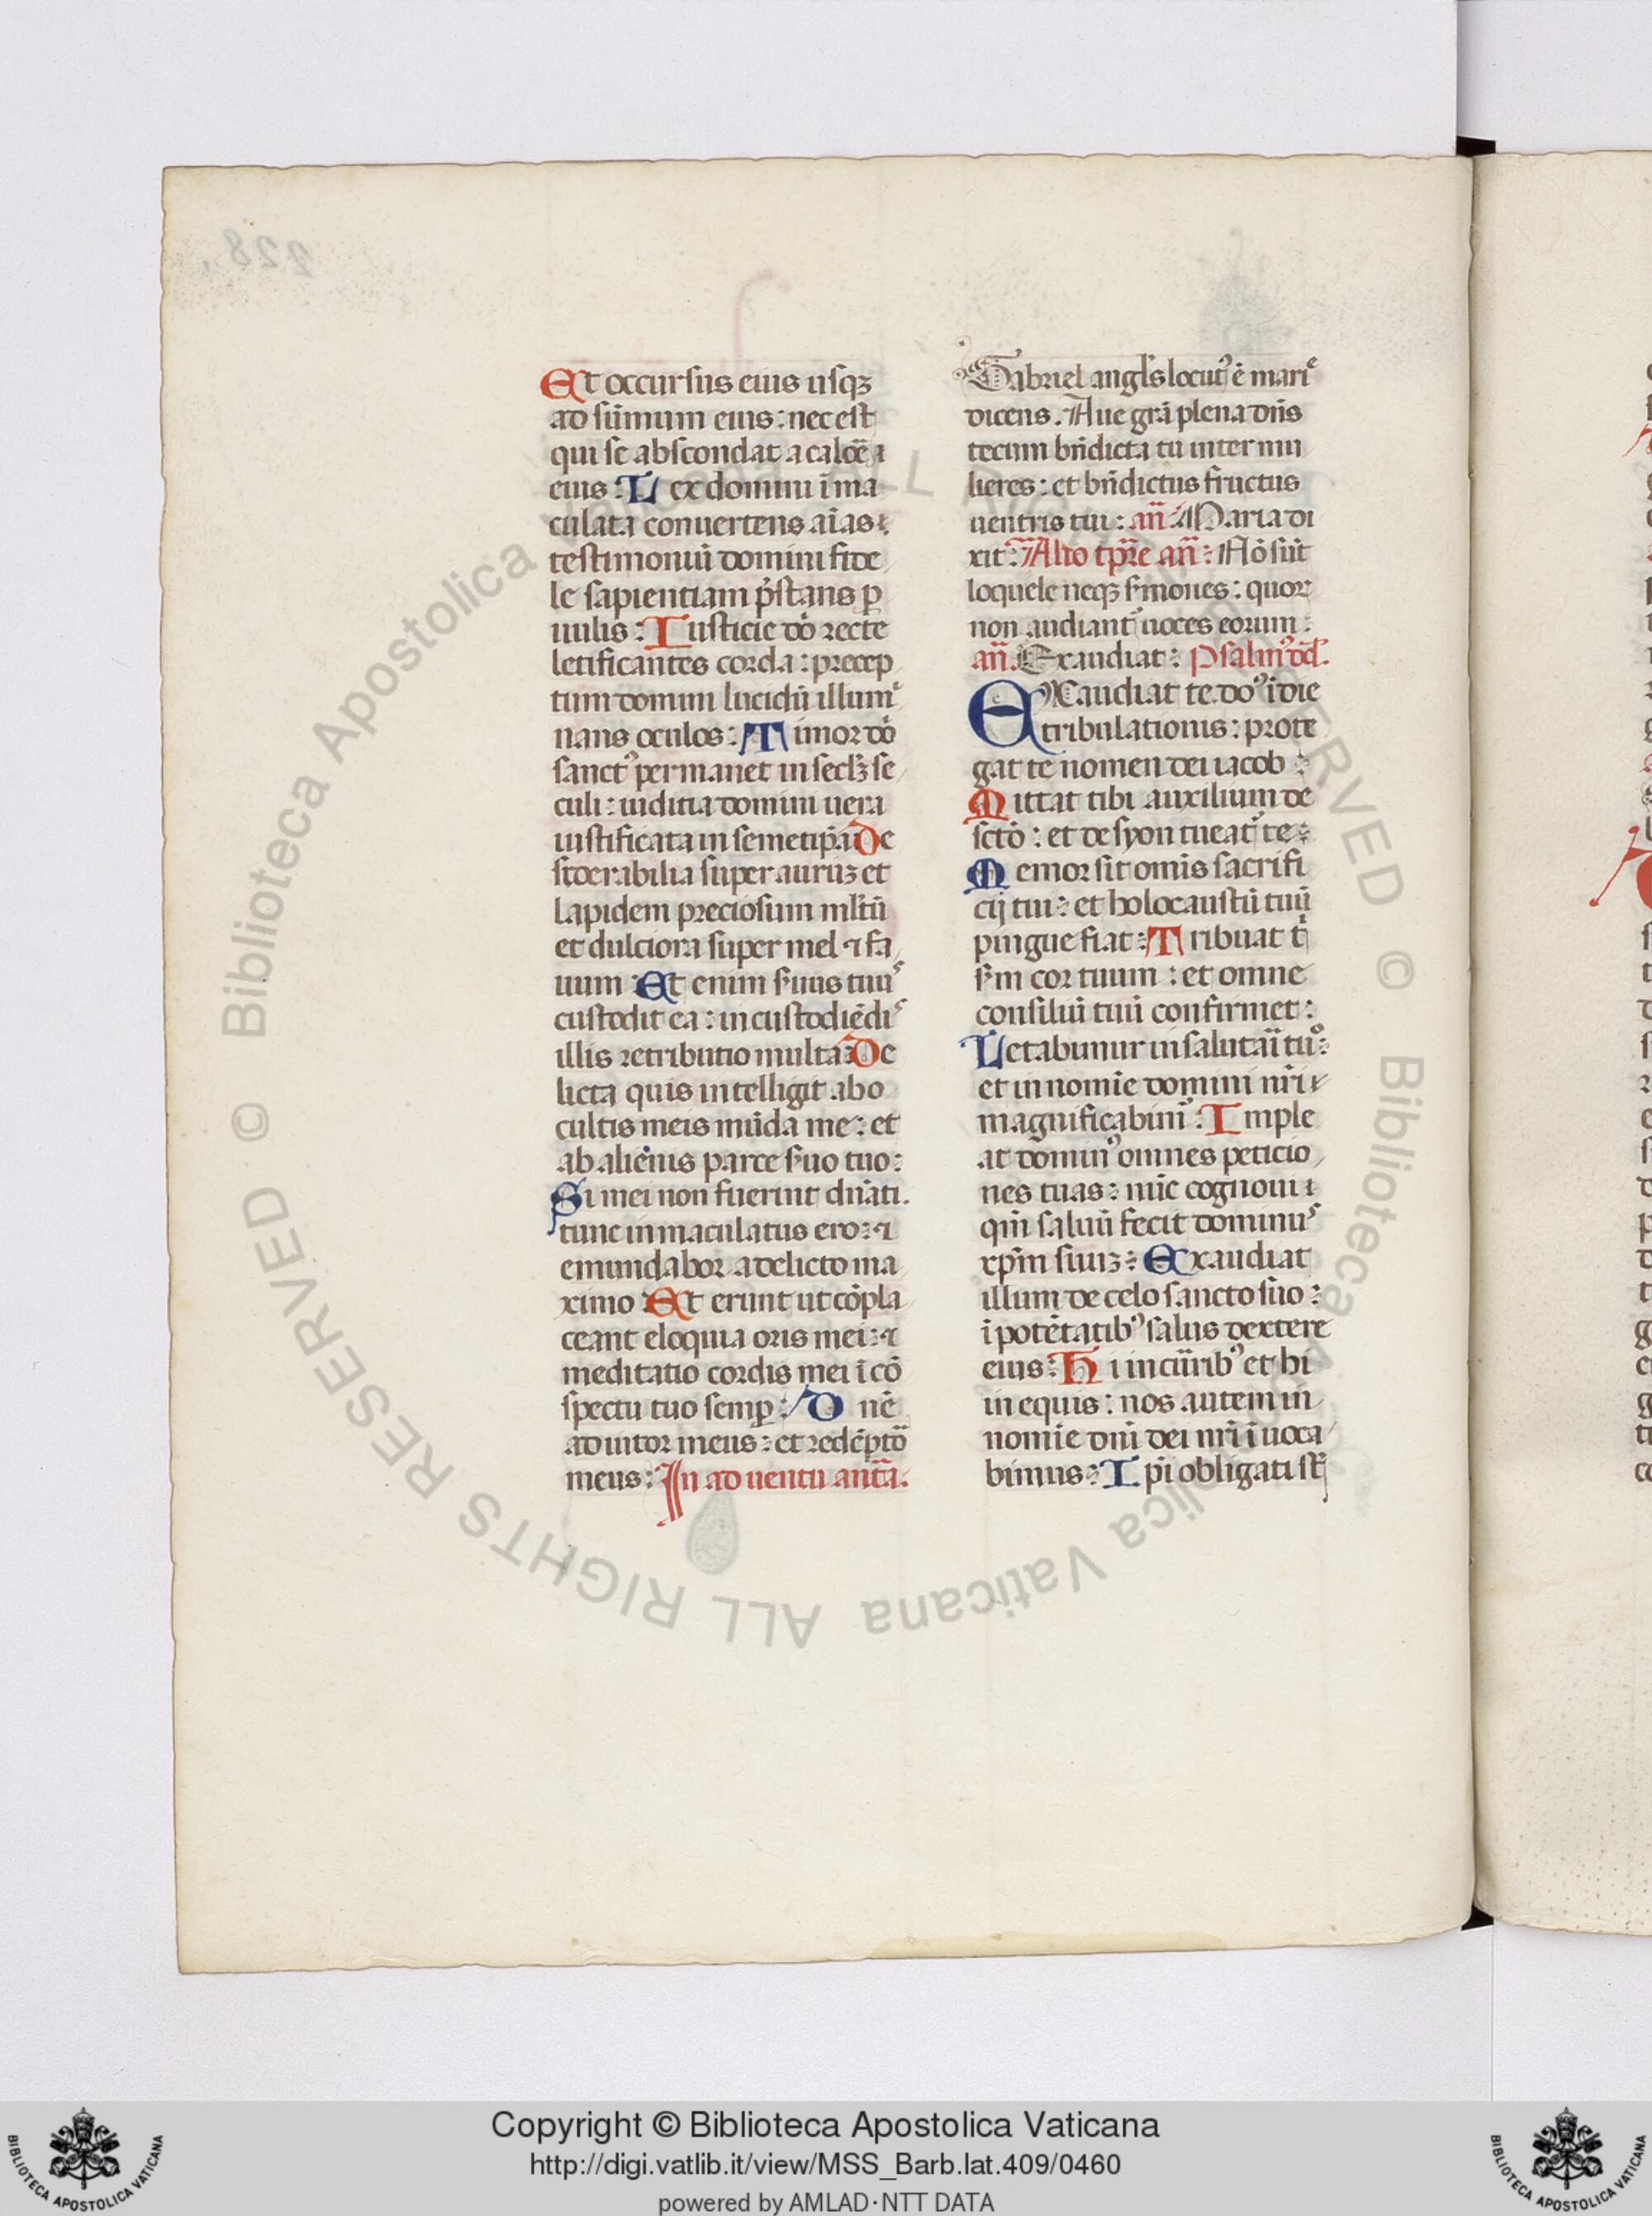 228.
Et occursus eius usqʒ
ad sūmum eius : nec est
qui se abscondat a calorē
eius : Lex domini īma
culata conuertens aīas :
testimoniū domini fide
le sapientiam p̄stans ꝑ
uulis : Iusticie dō recte
letificantes corda : precep
tum domini lucidū illumi
nans oculos : Timor dō
sanctꝰ permanet in seclʒ se
culi : iuditia domini uera
iustificata in semetip̄a De
siderabilia super auruʒ et
lapidem preciosum ml̄tū
et dulciora super mel ⁊ fa
uum : Et enim s̄uus tuus
custodit ea : in custodiēdis
illis retributio multa : De
licta quis intelligit ab o
cultis meis mūda me : et
ab alienis parce s̄uo tuo :
Si mei non fuerint dn̄ati.
tunc inmaculatus ero : ⁊
emundabor a delicto ma
ximo Et erunt ut cōpla
ceant eloquia oris mei : ⁊
meditatio cordis mei ī cō
spectu tuo semꝑ : Dnē
adiutor meus : et redēptō
meus : In aduentu antā.
Gabriel angl̄s locutꝰ ē marie
dicens. Aue grā plena dn̄s
tecum bn̄dicta tu inter mu
lieres : et bn̄dictus fructus
uentris tui : an̄. Maria di
xit : Alio tp̄re an̄ : Nō sūt
loquele neqʒ s̄mones : quoꝝ
non audiantᷣ uoces eorum :
an̄. Exaudiat : Psalmꝰ dd̄.
EXaudiat te doꝰ ī die
tribulationis : prote
gat te nomen dei iacob :
Mittat tibi auxilium de
sctō : et de syon tueatᷣ te :
Memor sit omīs sacrifi
cij tui : et holocaustū tuū
pingue fiat : Tribuat tͥ
s̄m cor tuum : et omne
consiliū tuū confirmet :
Letabimur in salutāi tuͦ :
et in nomīe domini nr̄i
magnificabimꝰ : Imple
at dominꝰ omnes peticio
nes tuas : nūc cognoui
qm̄ saluū fecit dominus
xp̄m suuʒ : Exaudiat
illum de celo sancto suo :
ī potētatibꝰ salus dextere
eius : Hi in curribꝰ et hi
in equis : nos autem in
nomīe dn̄i dei nr̄i īuoca
bimus : Ipi obligati st̄
© Biblioteca Apostolica Vaticana ALL RIGHTS RESERVED © Biblioteca Apostolica Vaticana ALL RIGHTS RESERVED
Copyright © Biblioteca Apostolica Vaticana
http://digi.vatlib.it/view/MSS_Barb.lat.409/0460
powered by AMLAD·NTT DATA
BIBLIOTECA APOSTOLICA VATICANA
BIBLIOTECA APOSTOLICA VATICANA